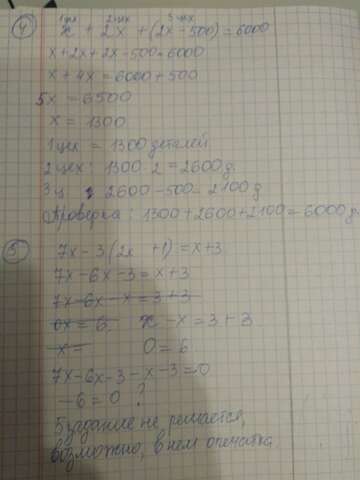 1 цех 2 цех 3 цех
④ x + 2x + (2x - 500) = 6000
x + 2x + 2x - 500 = 6000
x + 4x = 6000 + 500
5x = 6500
x = 1300
1 цех = 1300 деталей
2 цех: 1300 · 2 = 2600 д.
3 ц 2600 - 500 = 2100 д
Проверка: 1300 + 2600 + 2100 = 6000 д.
⑤ 7x - 3(2x + 1) = x + 3
7x - 6x - 3 = x + 3
7x - 6x - x = 3 + 3
0x = 6. x - x = 3 + 3
x = 0 = 6
7x - 6x - 3 - x - 3 = 0
-6 = 0 ?
5 задание не решается,
возможно, в нем опечатка